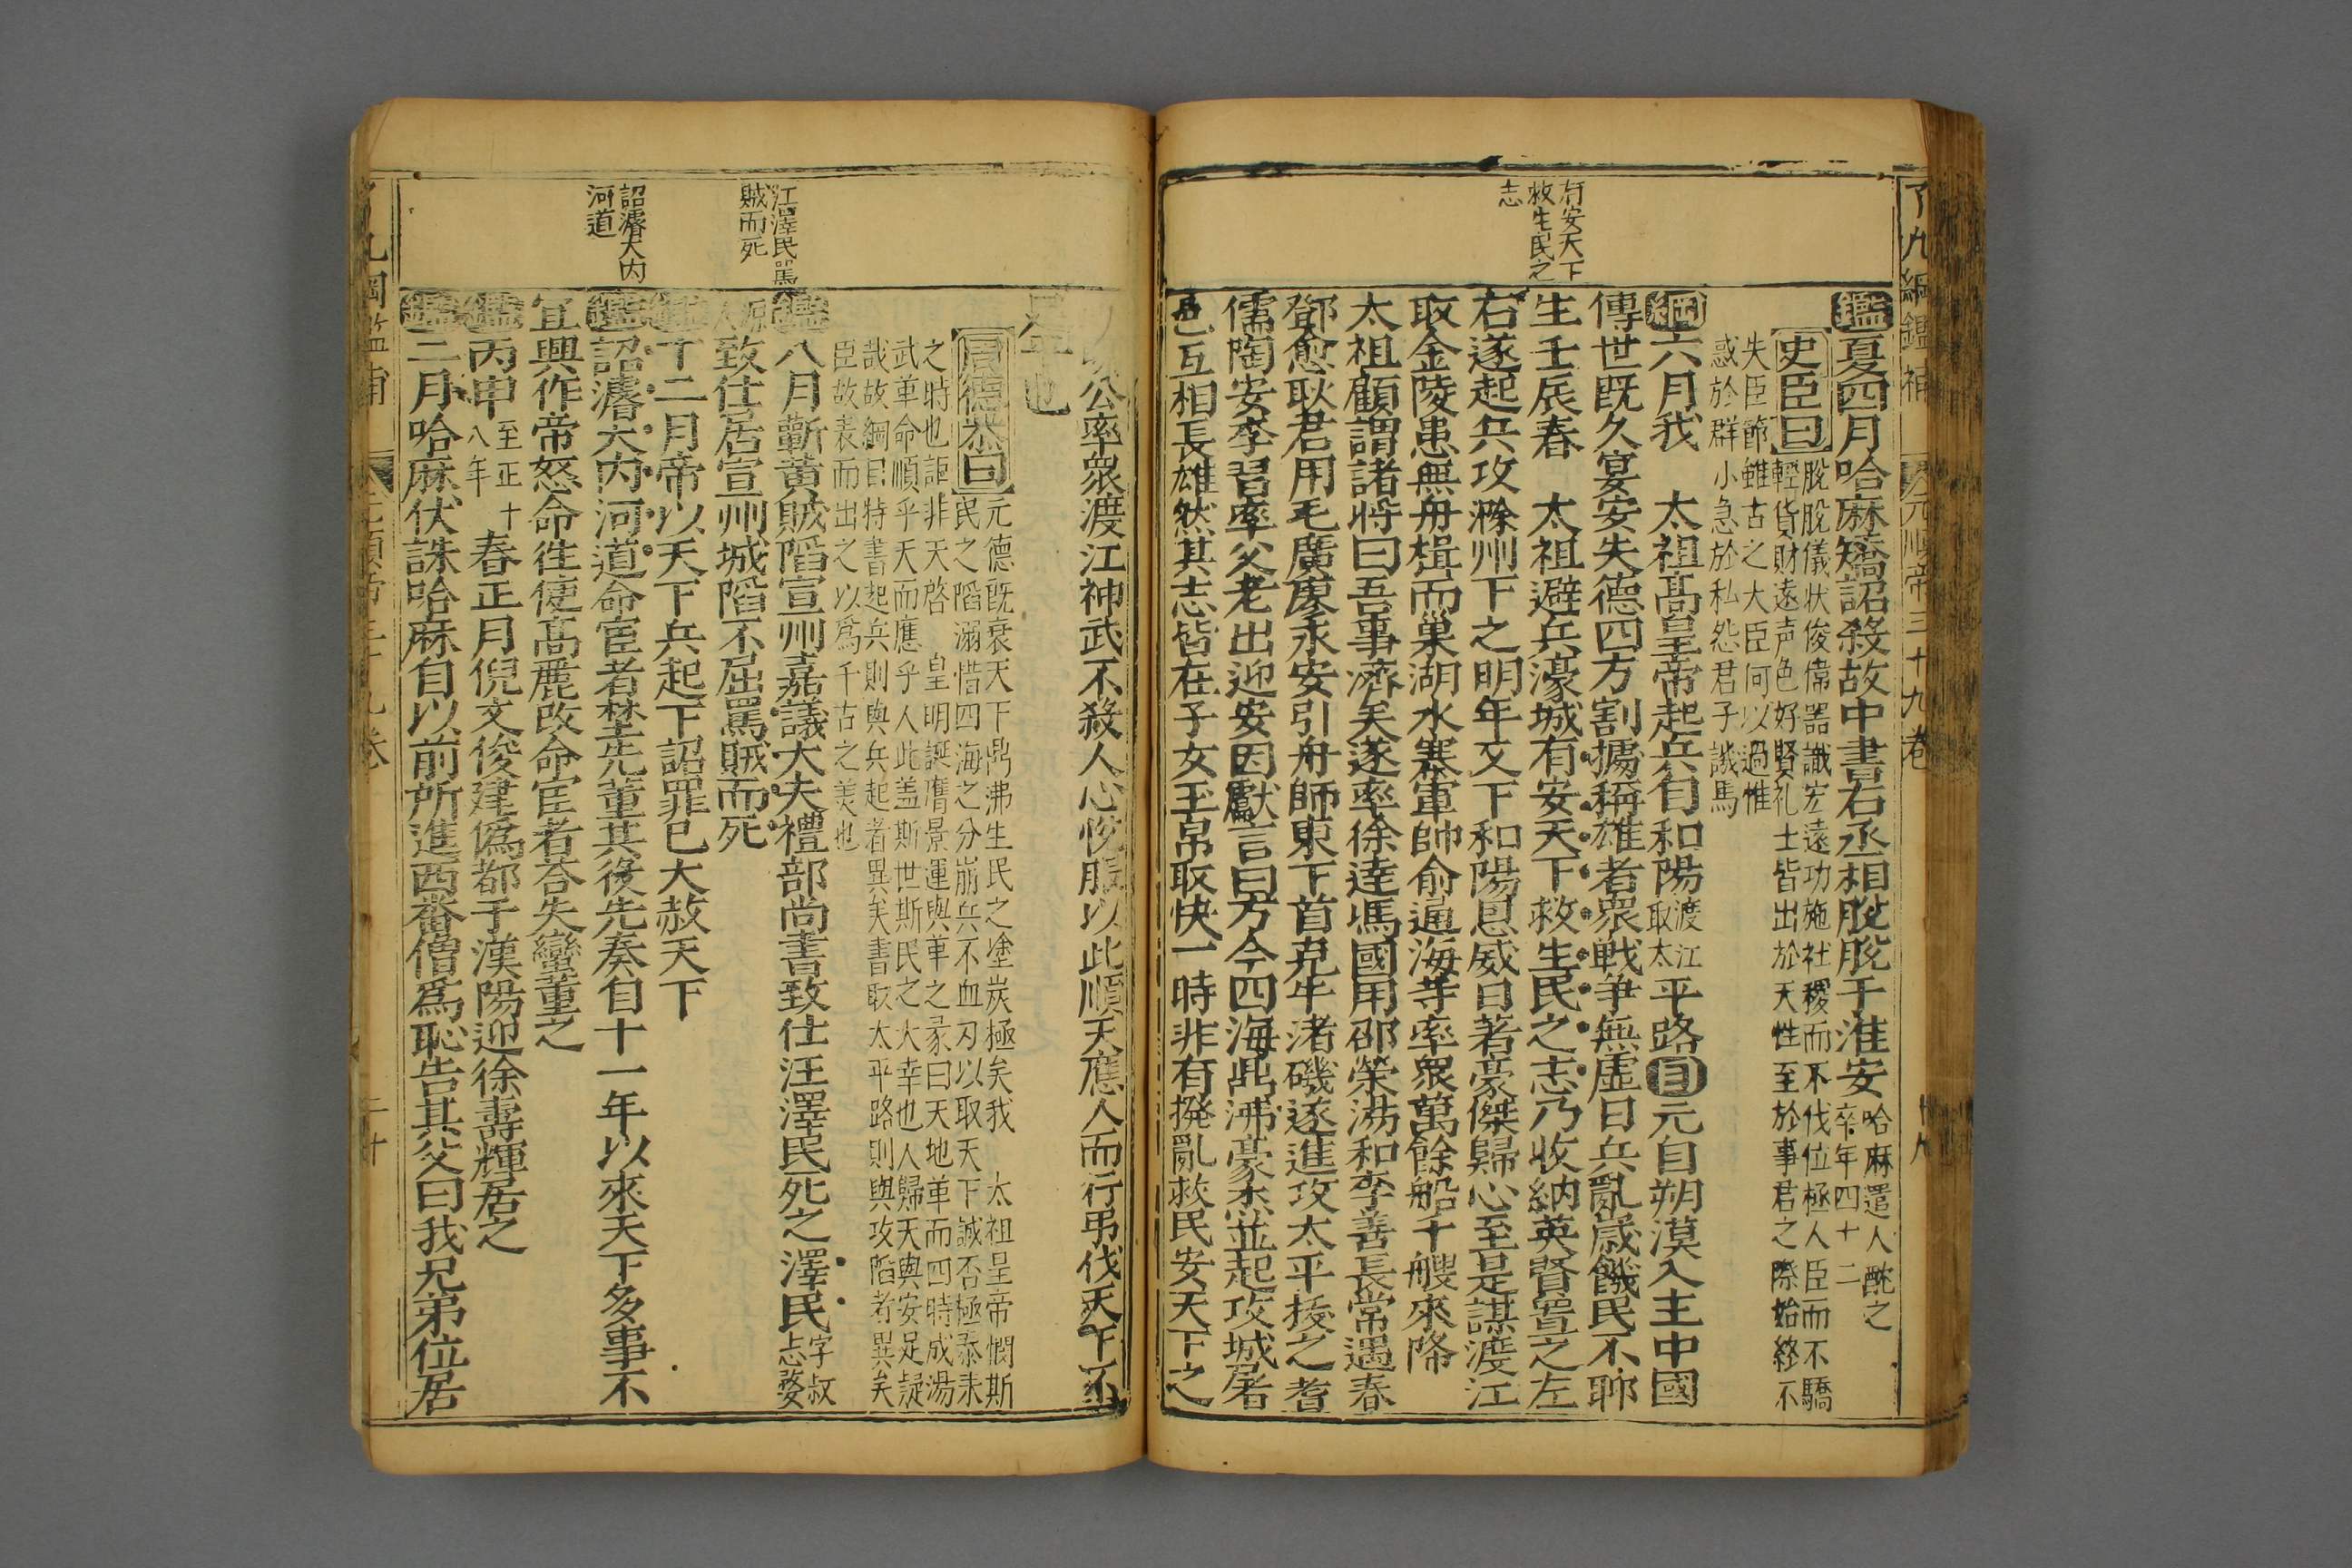 了凡綱鑑補
元順帝三十九卷
有安天下
救生民之
志
鑑夏四月哈麻矯詔殺故中書右丞相脫脫于淮安哈麻遣人酖之
卒年四十二
史臣曰脫脫儀状俊偉器識宏遠功施社稷而不伐位極人臣而不驕
輕貨財遠声色好賢礼士皆出於天性至於事君之際始終不
失臣節雖古之大臣何以過惟
惑於群小急於私怨君子譏焉
綱六月我　太祖高皇帝起兵自和陽渡江
取太
平路目元自朔漠入主中國
傳世既久宴安失德四方割據稱雄者衆戰爭無虛日兵亂歲饑民不聊
生壬辰春　太祖避兵濠城有安天下救生民之志乃收納英賢置之左
右遂起兵攻滁州下之明年又下和陽恩威日著豪傑歸心至是謀渡江
取金陵患無舟楫而巢湖水寨軍帥俞通海等率衆萬餘船千艘來降
太祖顧謂諸將曰吾事濟矣遂率徐達馮國用邵榮湯和李善長常遇春
鄧愈耿君用毛廣廖永安引舟師東下首克牛渚磯遂進攻太平拔之耆
儒陶安李習率父老出迎安因獻言曰方今四海鼎沸豪杰並起攻城屠
邑互相長雄然其志皆在子女玉帛取快一時非有撥亂救民安天下之
公率衆渡江神武不殺人心悅服以此順天應人而行弔伐天下不
足平也
周德恭曰元德既衰天下鼎沸生民之塗炭極矣我　太祖皇帝憫斯
民之陷溺惜四海之分崩兵不血刃以取天下誠否極泰来
之時也詎非天啓　皇明誕膺景運與革之彖曰天地革而四時成湯
武革命順乎天而應乎人此盖斯世斯民之大幸也人歸天與安足疑
哉故綱目特書起兵則與兵起者異矣書取太平路則與攻陷者異矣
臣故表而出之以爲千古之美也
江澤民罵
賊而死
鑑八月蘄黃賊陷宣州嘉議大夫禮部尚書致仕汪澤民死之澤民字叔
志婺
源
人致仕居宣州城陷不屈罵賊而死
鑑十二月帝以天下兵起下詔罪已大赦天下
詔濬大内
河道
鑑詔濬大内河道命宦者埜先董其役先奏自十一年以來天下多事不
宜興作帝怒命往使高麗改命宦者荅失蠻董之
鑑丙申至正十
八年春正月倪文俊建僞都于漢陽迎徐壽輝居之
鑑二月哈麻伏誅哈麻自以前所進西番僧爲恥告其父曰我兄弟位居